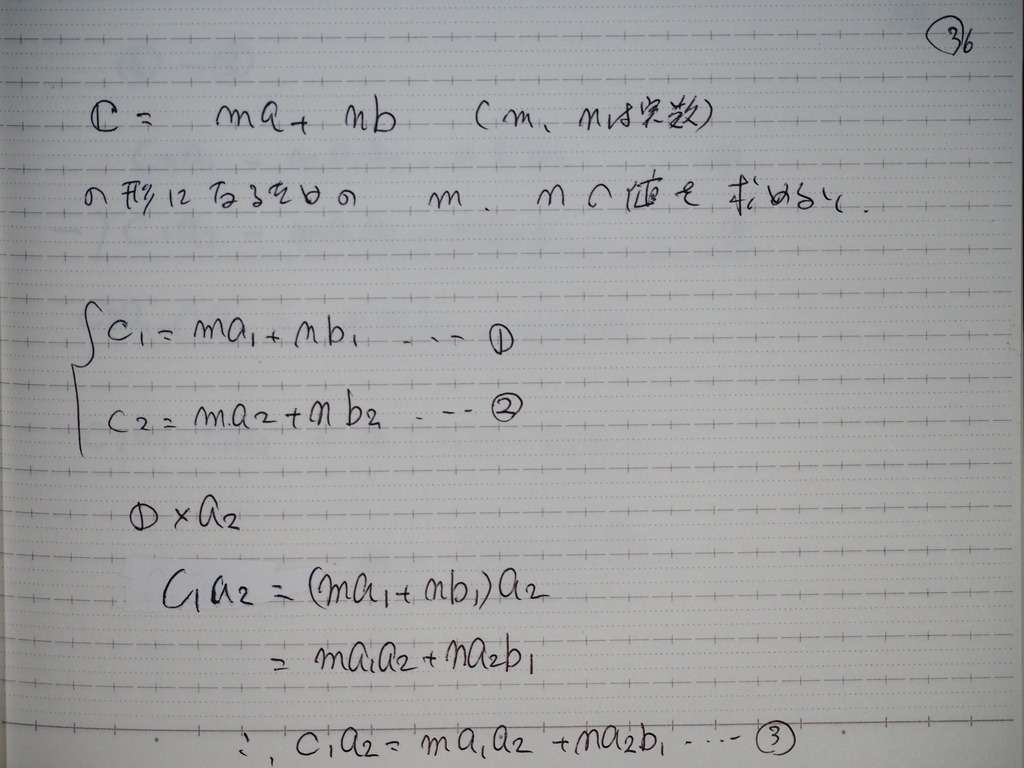 ㊱
ℂ = ma + nb (m、nは実数)
の形になるための m、nの値を求めるに.
c₁ = ma₁ + nb₁ ... ①
c₂ = ma₂ + nb₂ ... ②
① × a₂
c₁a₂ = (ma₁ + nb₁)a₂
= ma₁a₂ + na₂b₁
∴ c₁a₂ = ma₁a₂ + na₂b₁ ..... ③